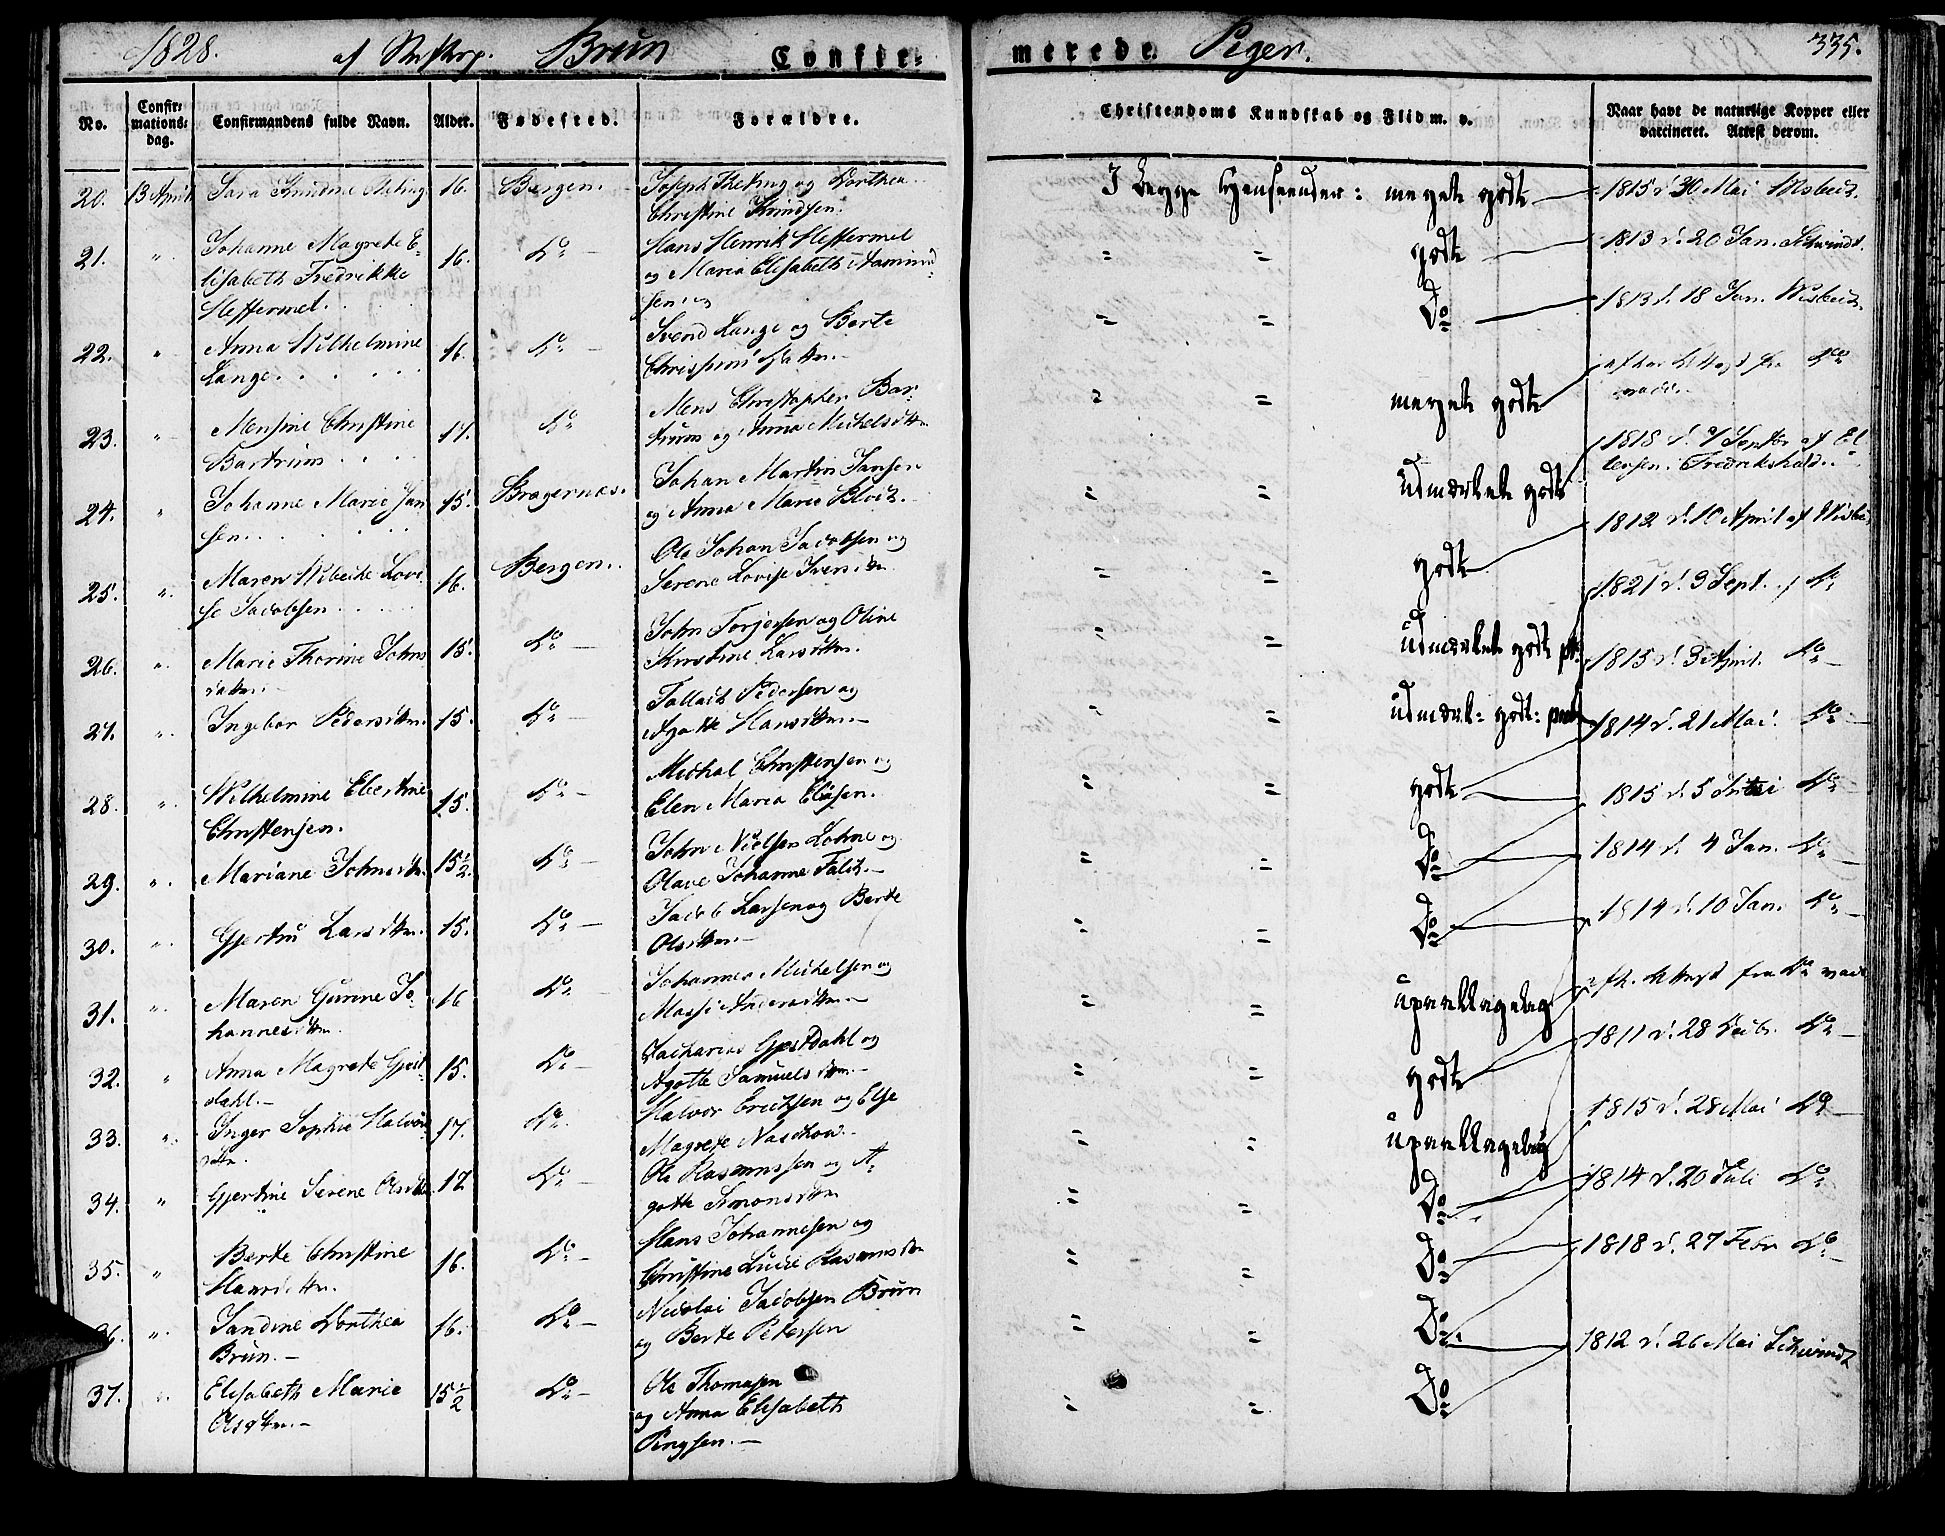 1828. af Brun Confir-
merede Piger. 335.
No.
Confir-
mations-
dag.
Confirmandens fulde Navn.
Alder.
Fødested.
Forældre.
Christendoms Kundskab og Flid m. v.
Naar havt de naturlige Kopper eller
vaccineret. Attest derom.
20. 13 April Sara 16. Bergen. Joseph og Dorthea
Christine Knudsen. I begge Henseender: meget godt 1815 d. 30 Mai
21. " Johanne Magrete E-
lisabeth Fredrikke
Steffermel. 16. Do Hans Henrik Steffermel
og Maria Elisabeth
sen = = godt 1813 d. 20 Jan. Schwindt.
22. " Anna Wilhelmine
Lange. 16. Do Svend Lange og Berte
= = Do 1813 d. 18 Jan.
23. " Mensine Christine
Bartrum 17. Do Mens Christopher Bar-
trum og Anna Michelsdtr = = meget godt Do
24. " Johanne Marie Jan
sen. 15. Bragernæs. Johan Martin Jansen
og Anna Marie = = udmærket godt 1818 d. 7 Septbr af
Fredrikshald.
25. " Maren Wibecke Lovi-
se Jacobsen 16. Bergen. Ole Johan Jacobsen og
Serene Lovise = = godt 1812 d. 10 April af
26. " Marie Thorine Johns
datter. 15. Do John Torjersen og Oline
Kristine Larsdtr. = = udmærket godt 1821 d. 3 Sept. Do
27. " Ingebor Pedersdtr. 15. Do Pedersen og
Agotte Hansdtr. " = udmærk: godt: 1815 d. 3 April. Do
28. " Wilhelmine Elertine
Christensen. 15. Do Michal Christensen og
Elen Maria Eliasen. = = godt 1814 d. 21 Mai. Do
29. " Mariane Johnsdtr. 15½. Do John Nielsen Lohne og
Olave Johanne Falch. = = Do 1815 d. 5 Do
30. " Gjertru Larsdtr. 15. Do Jacob Larsen og Berte
Olsdtr. = = Do 1814 d. 4 Jan. Do
31. " Maren Gurine Jo-
hannesdtr. 16 Do Johannes Michelsen og
Andersdtr. = = upaaklagelig 1814 d. 10 Jan. Do
32. " Anna Magrete Gjest-
dahl. 15. Do Zacharias Gjestdahl og
Agotte Samuelsdtr. = = godt fra Do
33. " Inger Sophie Halvor
dtr. 17. Do Halvor Ericksen og Else
Magrete Naschow. = = upaaklagelig 1811 d. 28 Do
34. " Gjertine Serene Olsdtr 17 Do Ole Rasmussen og A-
gotte Simonsdtr = = Do 1815 d. 28 Mai Do
35. " Berte Christine
Hansdtr. 16. Do Hans Johannesen og
Christine Lucie Rasmusdtr = = Do 1814 d. 20 Juli Do
36. " Sandine Dorthea
Brun. 16. Do Nicolai Jacobsen Brun
og Berte Petersen = = Do 1818 d. 27 Febr Do
37. " Elisabeth Marie
Olsdtr. 15½ Do Ole Thomasen
og Anna Elisabeth
= = Do 1812 d. 26 Mai Schwindt